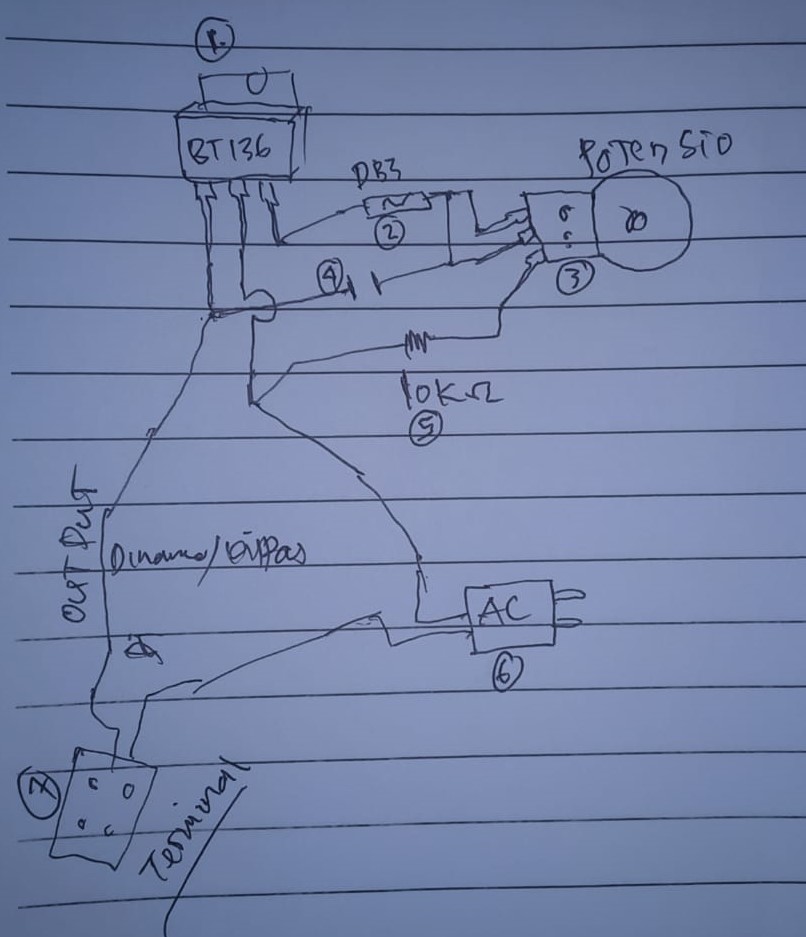 1.
BT136
POTENSIO
DB3
2
3
4
10KΩ
5
OUTPUT
Dinamo/kippas
AC
6
7
Terminal